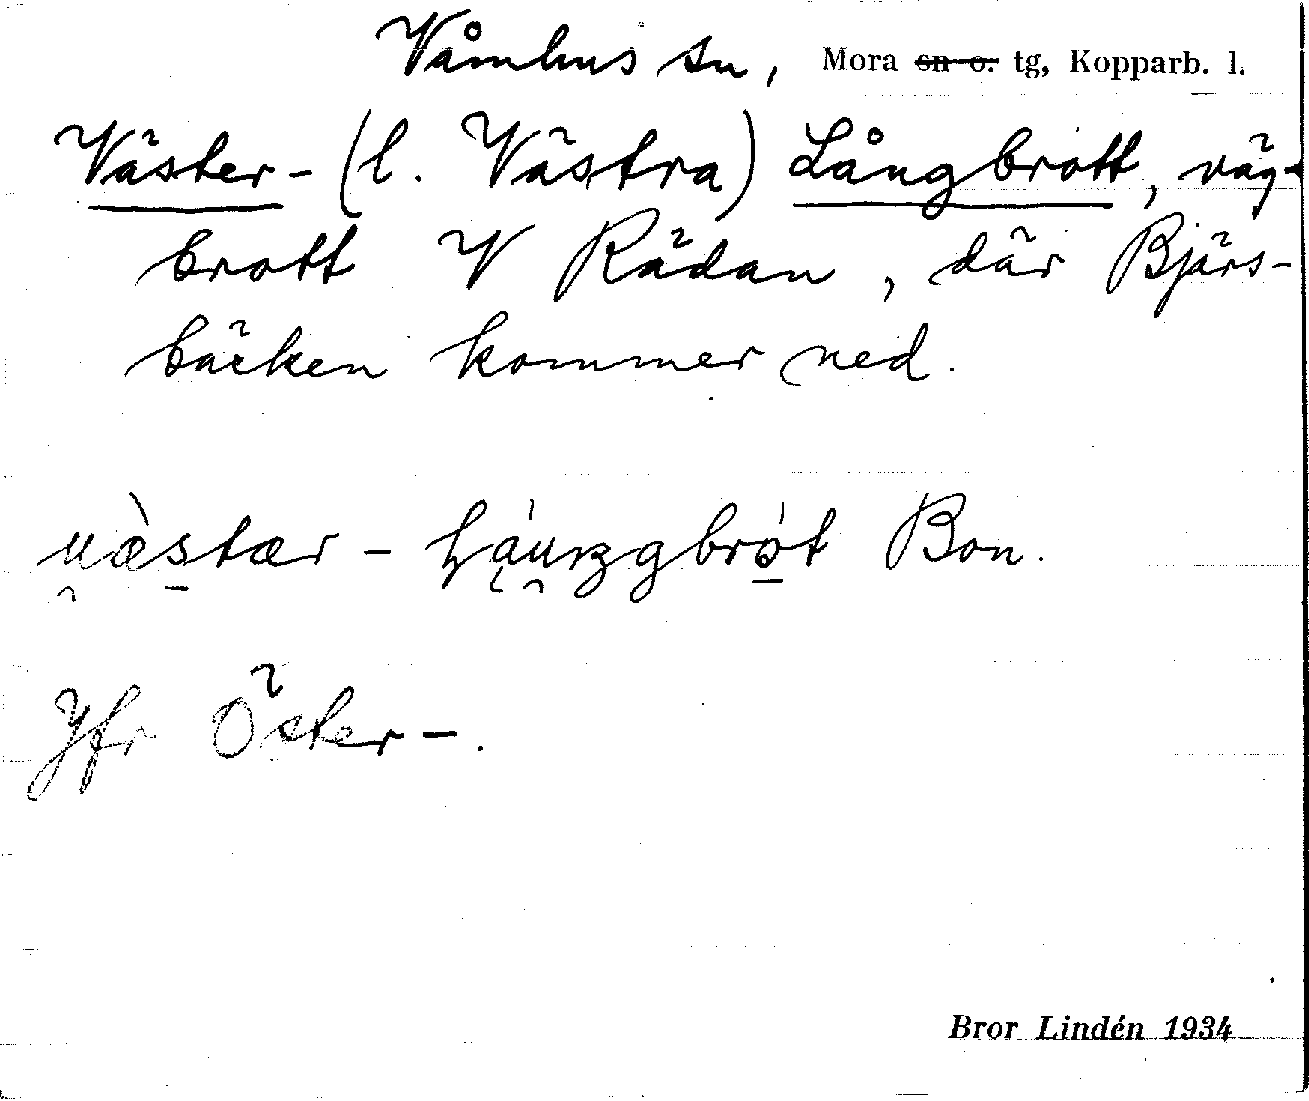 Våmhus sn, Mora ~~sn o.~~ tg, Kopparb. l.
Väster- (l. Västra) Långbrott, väg-
brott V Rädan, där Bjärs-
bäcken kommer ned.
Bon.
Jfr Öster-.
Bror Lindén 1934